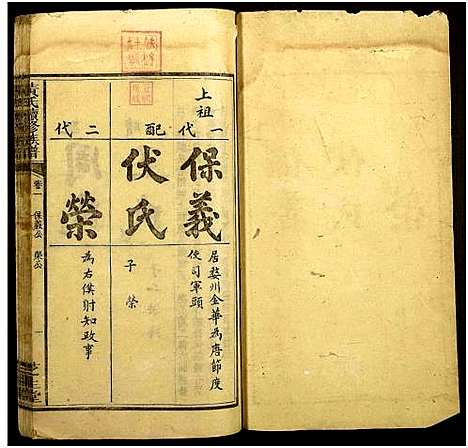 上祖
一代
保義
居婺州金華為唐節度
使司軍頭
配
伏氏
子榮
二代
榮
為右僕射知政事
黃氏續修族譜
卷一
保義公 榮公
一